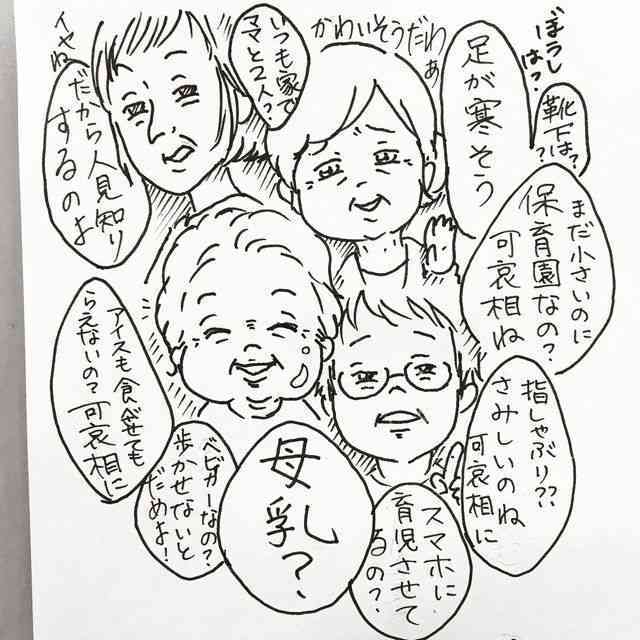 ぼうしは？
靴下は？
足が寒そう
かわいそうだわぁ
いつも家で
ママと2人？
イヤね
だから人見知り
するのよ
まだ小さいのに
保育園なの？
可哀相ね
指しゃぶり??
さみしいのね
可哀相に
アイスも食べせても
らえないの？可哀相に
ベビカーなの？
歩かせないと
だめよ！
母乳？
スマホに
育児させて
るの？